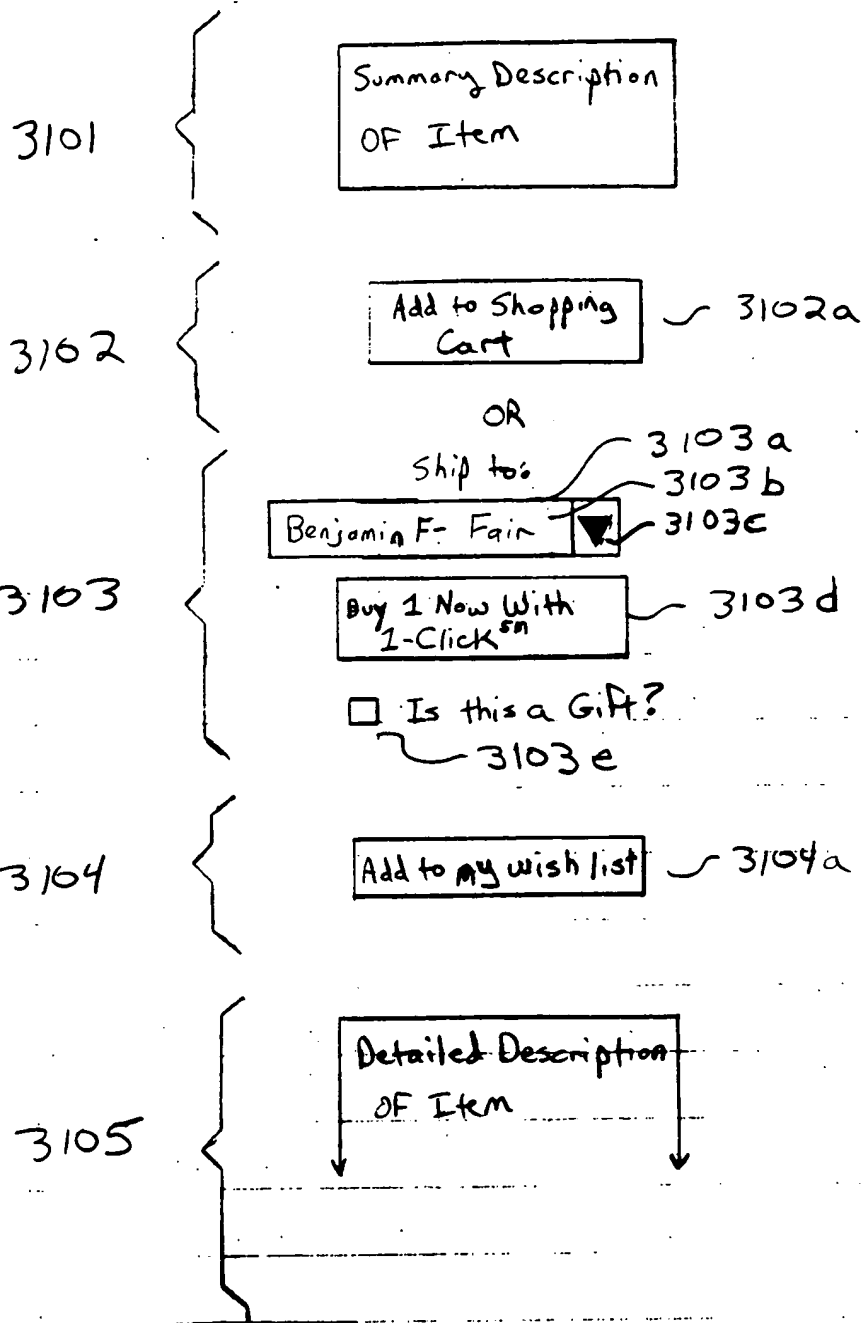 3101
Summary Description
OF Item
3102
Add to Shopping
Cart
3102a
OR
Ship to:
3103a
3103b
Benjamin F- Fair
3103c
3103
Buy 1 Now With
1-Click sm
3103d
Is this a Gift?
3103e
3104
Add to my wish list
3104a
Detailed Description
OF Item
3105